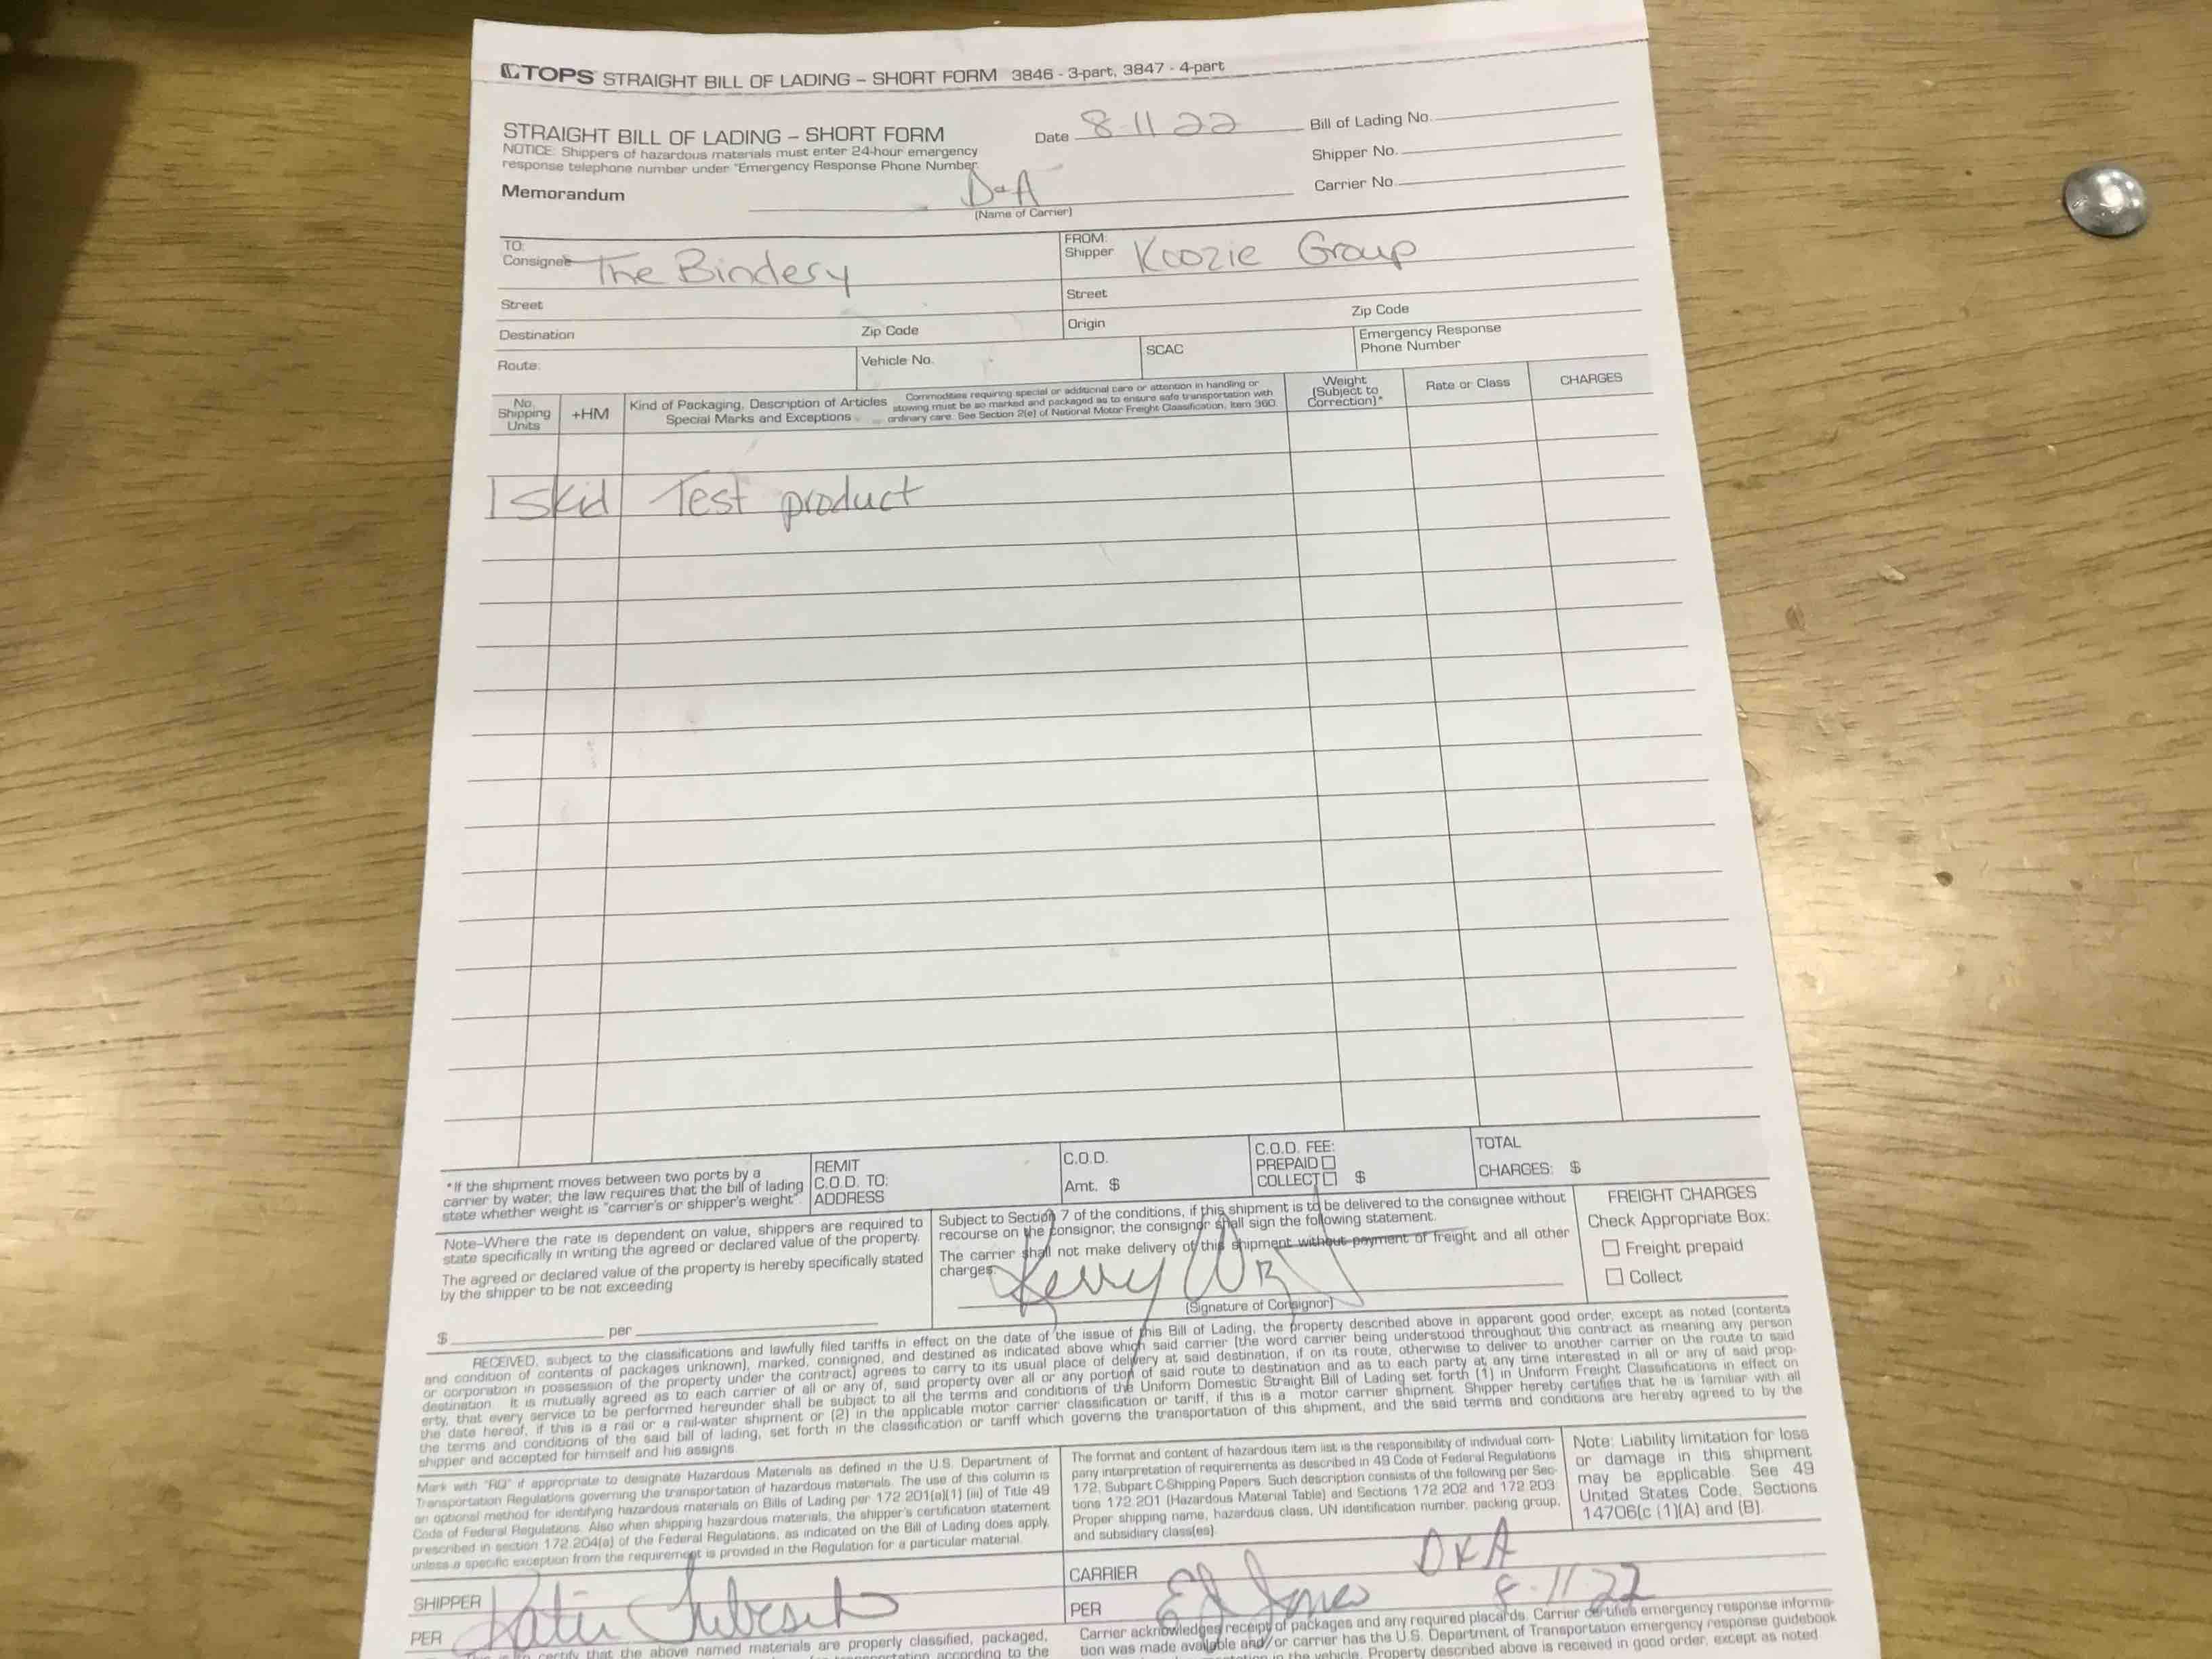 TOPS STRAIGHT BILL OF LADING – SHORT FORM 3846 - 3-part, 3847 - 4-part
STRAIGHT BILL OF LADING – SHORT FORM
NOTICE: Shippers of hazardous materials must enter 24-hour emergency
response telephone number under "Emergency Response Phone Number.
Date 8-11 22
Bill of Lading No.
Shipper No.
Carrier No.
Memorandum
D+A
(Name of Carrier)
TO:
Consignee The Bindery
Street
Destination Zip Code
FROM:
Shipper Koozie Group
Street
Origin Zip Code
Route: Vehicle No. SCAC Emergency Response
Phone Number
No.
Shipping
Units
+HM
Kind of Packaging, Description of Articles
Special Marks and Exceptions
Commodities requiring special or additional care or attention in handling or
stowing must be so marked and packaged as to ensure safe transportation with
ordinary care. See Section 2(e) of National Motor Freight Classification, Item 360.
Weight
(Subject to
Correction)*
Rate or Class
CHARGES
1 Skid Test product
*If the shipment moves between two ports by a
carrier by water, the law requires that the bill of lading
state whether weight is "carrier's or shipper's weight".
REMIT
C.O.D. TO:
ADDRESS
C.O.D.
Amt. $
C.O.D. FEE:
PREPAID
COLLECT $
TOTAL
CHARGES: $
Note–Where the rate is dependent on value, shippers are required to
state specifically in writing the agreed or declared value of the property.
The agreed or declared value of the property is hereby specifically stated
by the shipper to be not exceeding
$ per
Subject to Section 7 of the conditions, if this shipment is to be delivered to the consignee without
recourse on the consignor, the consignor shall sign the following statement.
The carrier shall not make delivery of this shipment without payment of freight and all other
charges.
Kerry
(Signature of Consignor)
FREIGHT CHARGES
Check Appropriate Box:
Freight prepaid
Collect
RECEIVED, subject to the classifications and lawfully filed tariffs in effect on the date of the issue of this Bill of Lading, the property described above in apparent good order, except as noted (contents
and condition of contents of packages unknown), marked, consigned, and destined as indicated above which said carrier (the word carrier being understood throughout this contract as meaning any person
or corporation in possession of the property under the contract) agrees to carry to its usual place of delivery at said destination, if on its route, otherwise to deliver to another carrier on the route to said
destination. It is mutually agreed as to each carrier of all or any of, said property over all or any portion of said route to destination and as to each party at any time interested in all or any of said prop-
erty, that every service to be performed hereunder shall be subject to all the terms and conditions of the Uniform Domestic Straight Bill of Lading set forth (1) in Uniform Freight Classifications in effect on
the date hereof, if this is a rail or a rail-water shipment or (2) in the applicable motor carrier classification or tariff, if this is a motor carrier shipment. Shipper hereby certifies that he is familiar with all
the terms and conditions of the said bill of lading, set forth in the classification or tariff which governs the transportation of this shipment, and the said terms and conditions are hereby agreed to by the
shipper and accepted for himself and his assigns.
Mark with "RQ" if appropriate to designate Hazardous Materials as defined in the U.S. Department of
Transportation Regulations governing the transportation of hazardous materials. The use of this column is
an optional method for identifying hazardous materials on Bills of Lading per 172.201(a)(1) (iii) of Title 49
Code of Federal Regulations. Also when shipping hazardous materials, the shipper's certification statement
prescribed in section 172.204(a) of the Federal Regulations, as indicated on the Bill of Lading does apply,
unless a specific exception from the requirement is provided in the Regulation for a particular material.
The format and content of hazardous item list is the responsibility of individual com-
pany interpretation of requirements as described in 49 Code of Federal Regulations
172, Subpart C-Shipping Papers. Such description consists of the following per Sec-
tions 172.201 (Hazardous Material Table) and Sections 172.202 and 172.203:
Proper shipping name, hazardous class, UN identification number, packing group,
and subsidiary class(es).
Note: Liability limitation for loss
or damage in this shipment
may be applicable. See 49
United States Code, Sections
14706(c (1)(A) and (B).
SHIPPER
PER Katie
CARRIER D&A
PER Ed Jones 8-11-22
certify that the above named materials are properly classified, packaged,
Carrier acknowledges receipt of packages and any required placards. Carrier certifies emergency response informa-
tion was made available and/or carrier has the U.S. Department of Transportation emergency response guidebook
in the vehicle. Property described above is received in good order, except as noted